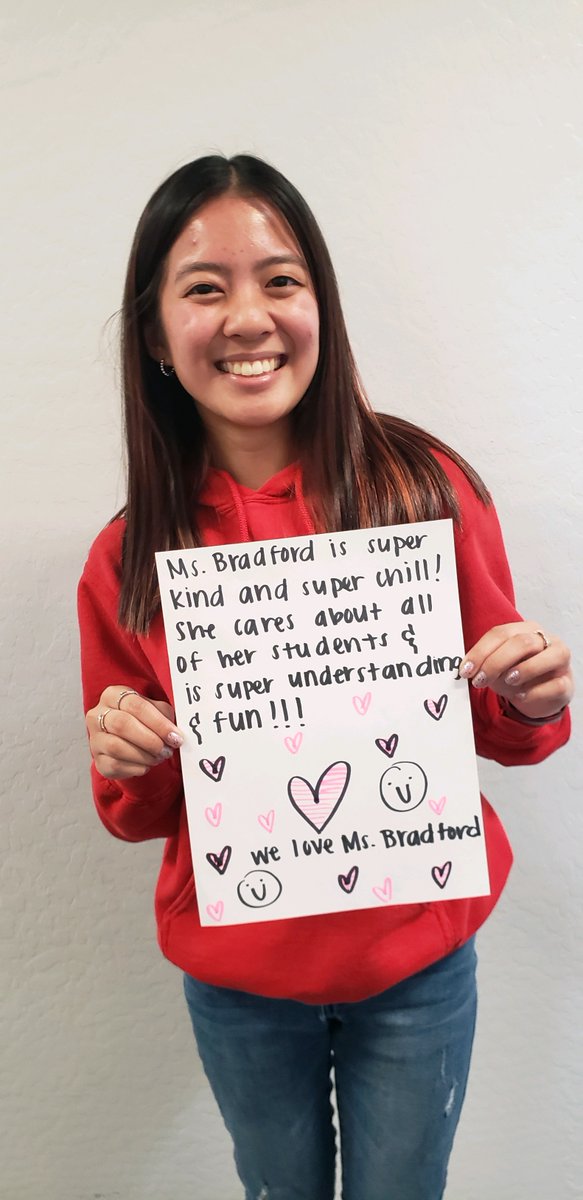 Ms. Bradford is super
kind and super chill!
She cares about all
of her students &
is super understanding
& fun!!!
we love Ms. Bradford